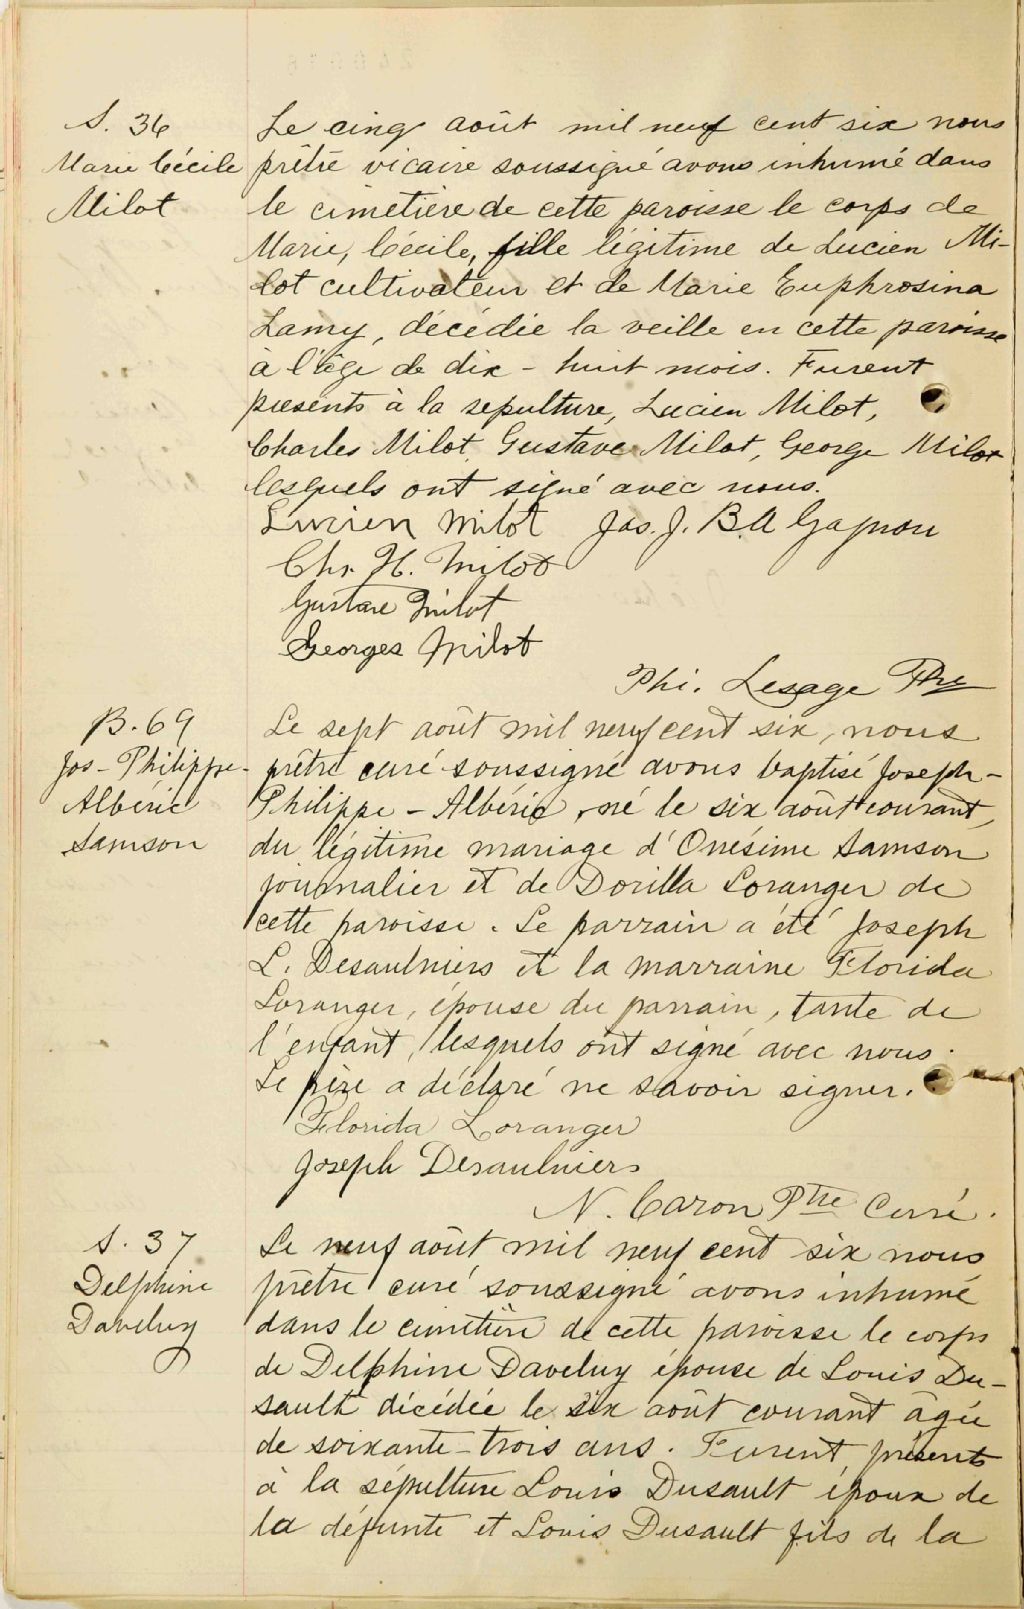 S. 36
Marie Cécile
Milot
Le cinq août mil neuf cent six nous
prêtre vicaire soussigné avons inhumé dans
le cimetière de cette paroisse le corps de
Marie, Cécile, fille légitime de Lucien Mi-
lot cultivateur et de Marie Euphrosina
Lamy, décédie la veille en cette paroisse
à l'âge de dix-huit mois. Furent
présents à la sepulture, Lucien Milot,
Charles Milot, Gustave Milot, George Milot
lesquels ont signé avec nous.
Lucien Milot Jos. J. B. A Gagnon
Chs. H. Milot
Gustave Milot
Georges Milot
Phi. Lesage Ptre
B. 69
Jos-Philippe-
Albéric
Samson
Le sept août mil neuf cent six, nous
prêtre curé soussigné avons baptisé Joseph-
Philippe-Albéric, né le six août courant,
du légitime mariage d'Onésime Samson
journalier et de Dorilla Loranger de
cette paroisse. Le parrain a été Joseph
L. Desaulniers et la marraine Florida
Loranger, épouse du parrain, tante de
l'enfant, lesquels ont signé avec nous.
Le père a déclaré ne savoir signer.
Florida Loranger
Joseph Desaulniers
N. Caron Ptre Curé.
S. 37
Delphine
Daveluy
Le neuf août mil neuf cent six nous
prêtre curé soussigné avons inhumé
dans le cimetière de cette paroisse le corps
de Delphine Daveluy épouse de Louis Du-
sault décédée le six août courant âgée
de soixante-trois ans. Furent présents
à la sépulture Louis Dusault époux de
la défunte et Louis Dusault fils de la